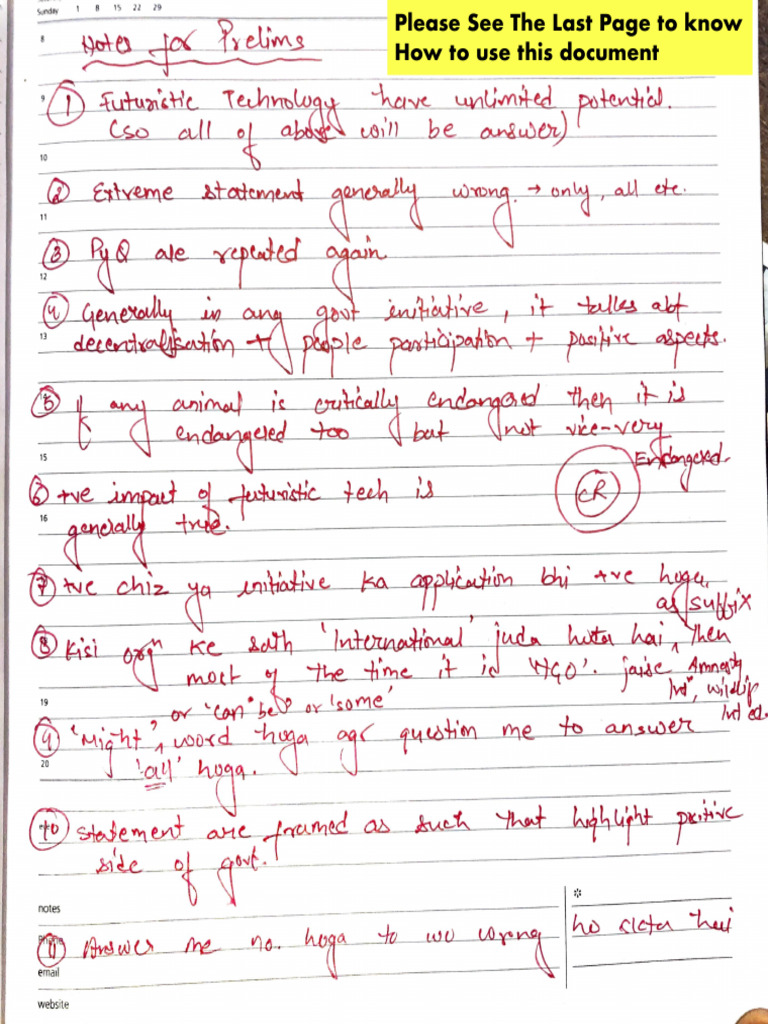 Sunday 1 8 15 22 29
Please See The Last Page to know
How to use this document
8
Notes for Prelims
9
① Futuristic Technology have unlimited potential.
(so all of above will be answer)
10
② Extreme statement generally wrong. → only, all etc.
11
③ PyQ are repeated again
12
④ Generally in any govt initiative, it talks abt
13
decentralisation + people participation + positive aspects.
⑤ If any animal is critically endangered then it is
endangered too but not vice-very
15
Endangered.
CR
⑥ +ve impact of futuristic tech is
16
generally true.
⑦ +ve chiz ya initiative ka application bhi +ve hoga.
as suffix
⑧ Kisi orgn ke sath 'International' juda huta hai, then
most of the time it is 'NGO'. jaise Amnesty
Int", wildlip
Int ed.
19
or 'can be' or 'some'
⑨ 'Might', word hoga agr question me to answer
20
'all' hoga.
⑩ statement are framed as such that highlight pritive
side of govt.
notes
*
⑪ Answer me no. hoga to wo wrong
ho skta hai
email
website